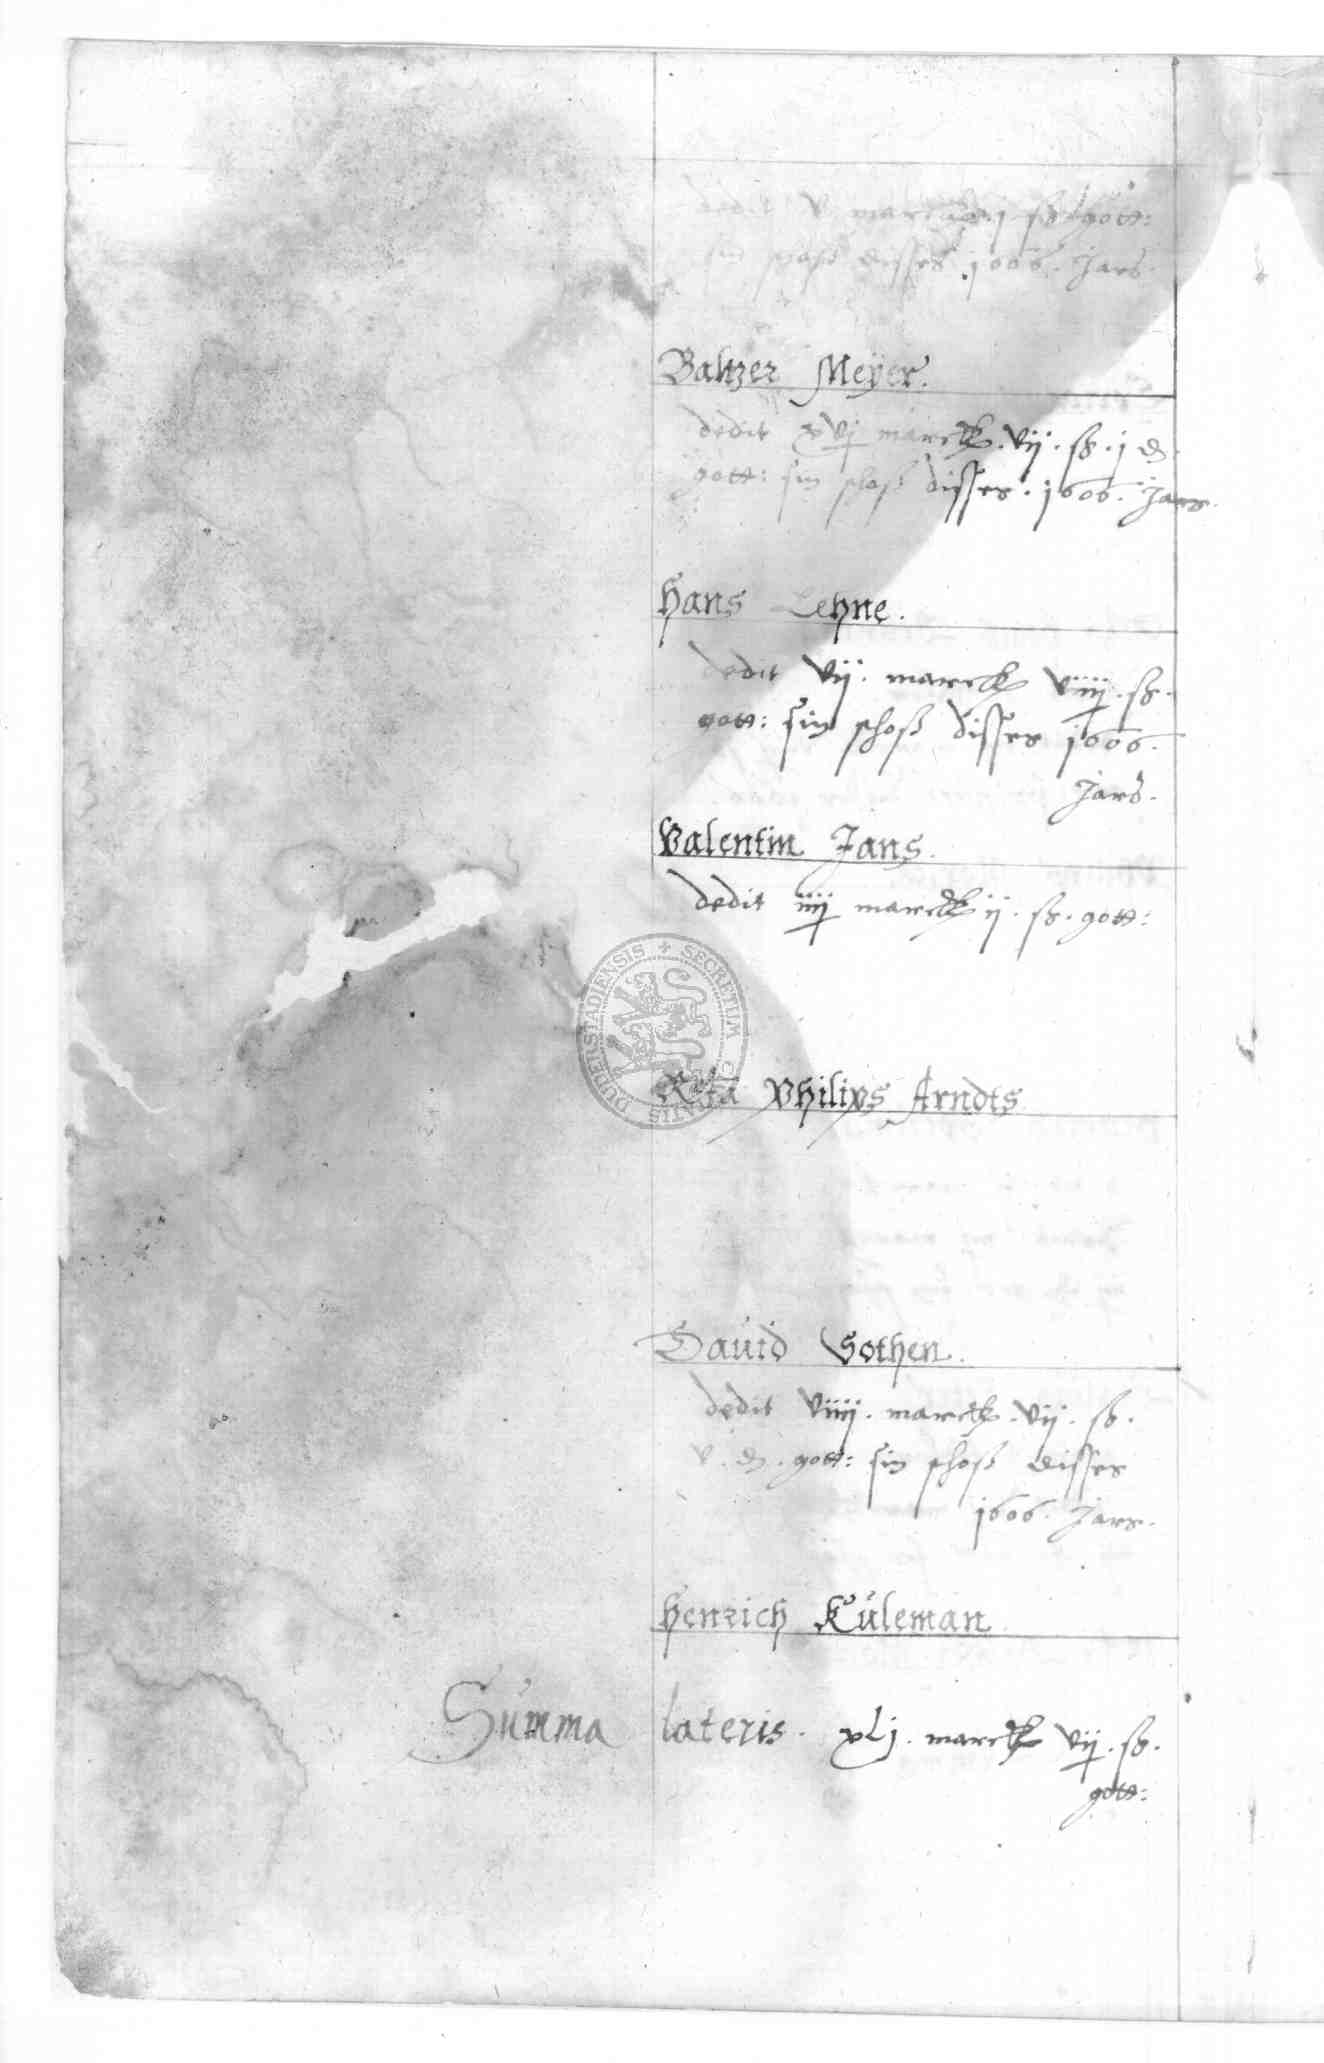 dedit v marck j ß gott:
sin schoß disses 1606. Jars.
Baltzer Meyer.
dedit xvj marck. vij. ß. j ₰.
gott: sin schoß disses. 1606. Jars.
Hans Lehne.
dedit vij. marck viiij. ß.
gott: sin schoß disses 1606.
Jars.
Valentin Jans.
dedit iiij marck ij. ß. gott:
SECRETUM CIVITATIS DUDERSTADIENSIS
Rel̄a Philips Arndts
David Sothen.
dedit viiij. marck. vij. ß.
v. ₰. gott: sin schoß disses
1606. Jars.
Henrich Küleman
Summa lateris. xlj. marck vij. ß.
gott: